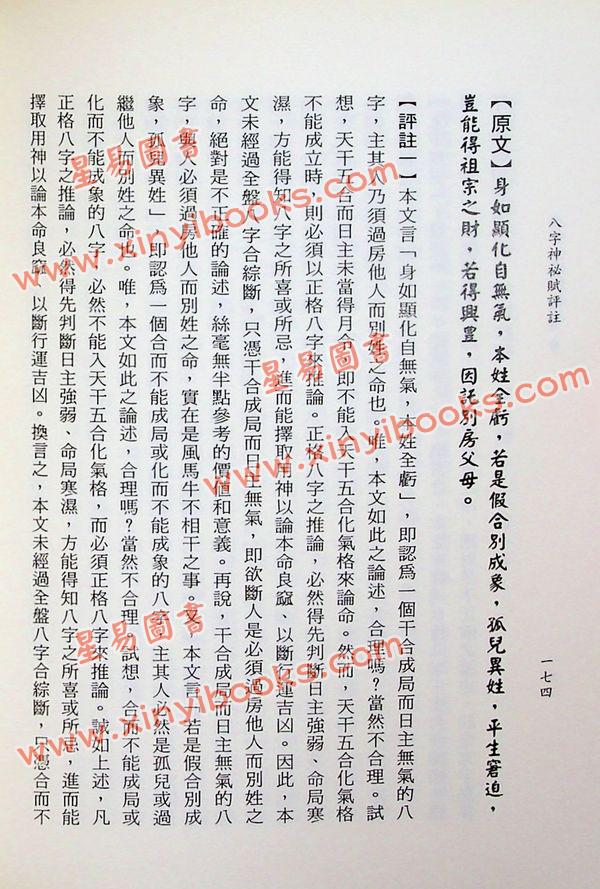 八字神祕賦評註
一七四
【原文】身如顯化自無氣，本姓全虧，若是假合別成象，孤兒異姓，平生窘迫，
豈能得祖宗之財，若得興豐，因託別房父母。
【評註一】本文言「身如顯化自無氣，本姓全虧」，即認爲一個干合成局而日主無氣的八
字，主其人乃須過房他人而別姓之命也。唯，本文如此之論述，合理嗎？當然不合理。試
想，天干五合而日主未當得月令，即不能入天干五合化氣格來論命。然而，天干五合化氣格
不能成立時，則必須以正格八字來推論。正格八字之推論，必然得先判斷日主強弱、命局寒
濕，方能得知八字之所喜或所忌，進而能擇取用神以論本命良窳、以斷行運吉凶。因此，本
文未經過全盤八字合綜斷，只憑干合成局而日主無氣，即欲斷人是必須過房他人而別姓之
命，絕對是不正確的論述，絲毫無半點參考的價值和意義。再說，干合成局而日主無氣的八
字，與人必須過房他人而別姓之命，實在是風馬牛不相干之事。又，本文言「若是假合別成
象，孤兒異姓」，即認爲一個合而不能成局或化而不能成象的八字，主其人必然是孤兒或過
繼他人而別姓之命也。唯，本文如此之論述，合理嗎？當然不合理。試想，合而不能成局或
化而不能成象的八字，必然不能入天干五合化氣格，而必須正格八字來推論。誠如上述，凡
正格八字之推論，必然得先判斷日主強弱、命局寒濕，方能得知八字之所喜或所忌，進而能
擇取用神以論本命良窳、以斷行運吉凶。換言之，本文未經過全盤八字合綜斷，只憑合而不
星易圖書
www.xinyibooks.com
星易圖書
www.xinyibooks.com
星易圖書
www.xinyibooks.com